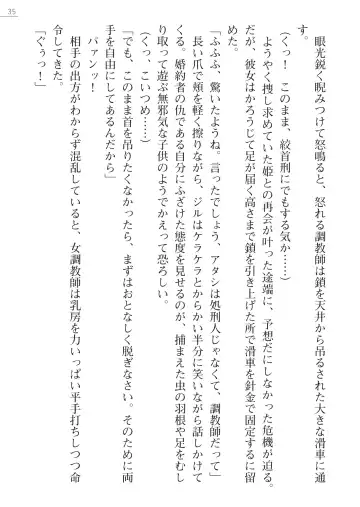 35
眼光鋭く睨みつけて怒鳴ると、怒れる調教師は鎖を天井から吊るされた大きな滑車に通
す。
(くっ！　このまま、絞首刑にでもする気か……)
ようやく捜し求めていた姫との再会が叶った途端に、予想だにしなかった危機が迫る。
だが、彼女はかろうじて足が届く高さまで鎖を引き上げた所で滑車を針金で固定するに留
めた。
「ふふふ、驚いたようね。言ったでしょう、アタシは処刑人じゃなくて、調教師だって」
長い爪で頬を軽く擦りながら、ジルはケラケラとからかい半分に笑いながら話しかけて
くる。婚約者の仇である自分にふざけた態度を見せるのが、捕まえた虫の羽根や足をむし
り取って遊ぶ無邪気な子供のようでかえって恐ろしい。
(くっ、こいつめ……)
「でも、このまま首を吊りたくなかったら、まずはおとなしく脱ぎなさい。そのために両
手を自由にしてあるんだから」
パァンッ！
相手の出方がわからずに混乱していると、女調教師は乳房を力いっぱい平手打ちしつつ命
令してきた。
「ぐぅっ！」